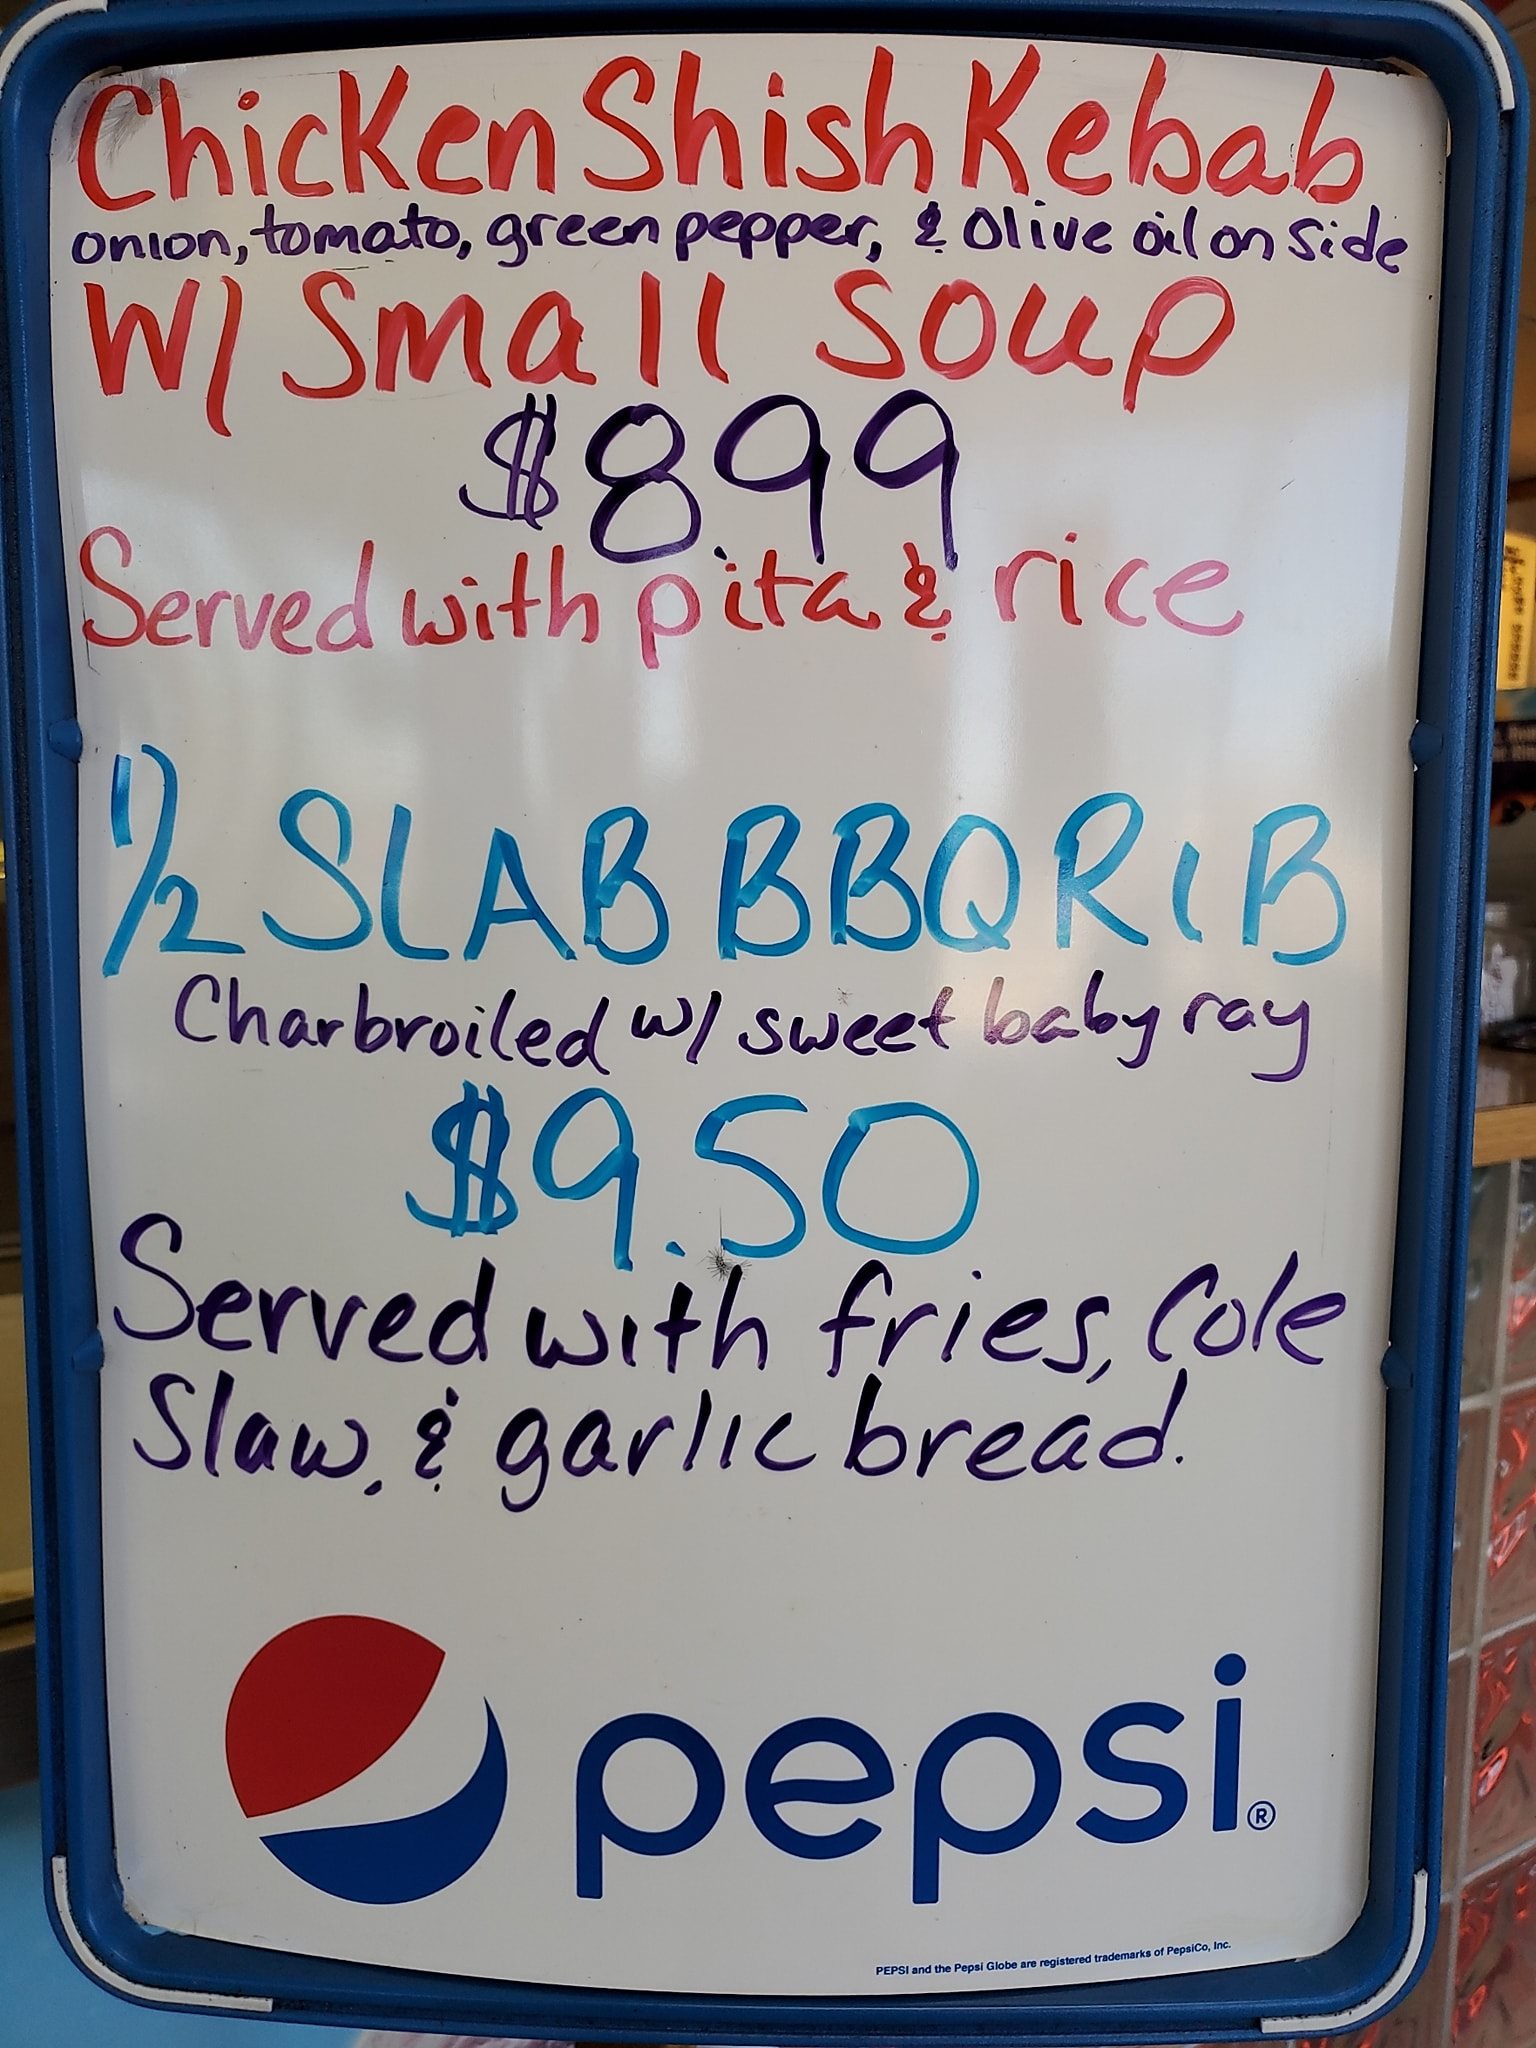 Chicken Shish Kebab
onion, tomato, green pepper, & olive oil on side
W/ Small Soup
$899
Served with pita & rice
1/2 SLAB BBQ RIB
Charbroiled w/ sweet baby ray
$9.50
Served with fries, Cole
Slaw, & garlic bread.
pepsi®
PEPSI and the Pepsi Globe are registered trademarks of PepsiCo, Inc.